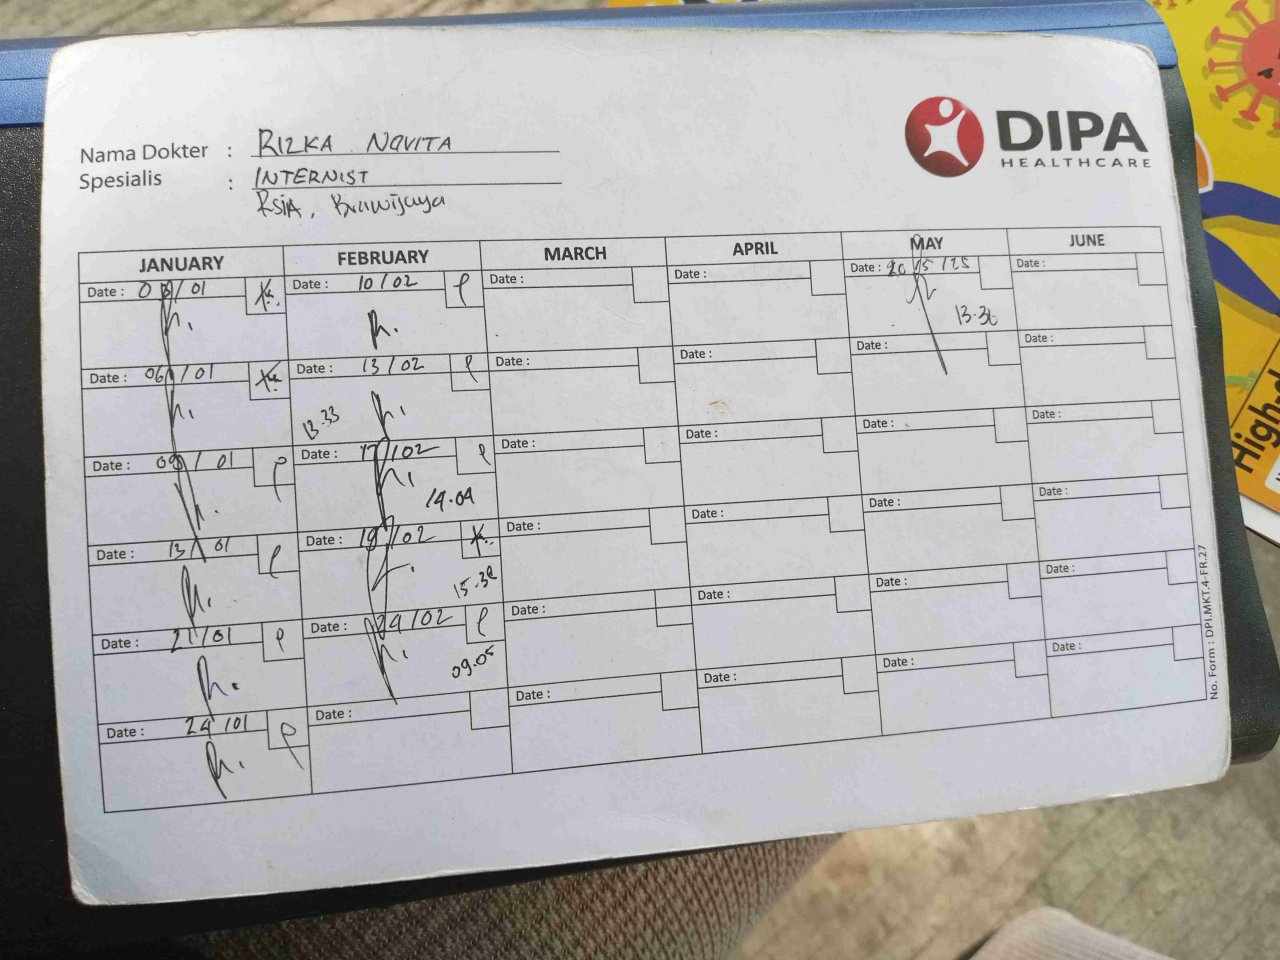 DIPA
HEALTHCARE
Nama Dokter : RIZKA NOVITA
Spesialis : INTERNIST
RSIA, Brawijaya
JANUARY FEBRUARY MARCH APRIL MAY JUNE
Date : /01 Date : 10/02 P Date : Date : Date : 20/5/25 Date :
13.36
Date : 06/01 Date : 13/02 P Date : Date : Date : Date :
13.33
Date : 09/01 P Date : 17/02 P Date : Date : Date : Date :
14.09
Date : 13/01 P Date : 19/02 Date : Date : Date : Date :
Date : 21/01 P Date : 24/02 P Date : Date : Date : Date :
09.05
Date : 24/01 P Date : Date : Date : Date : Date :
No. Form : DPI.MKT.4-FR.27
High-d